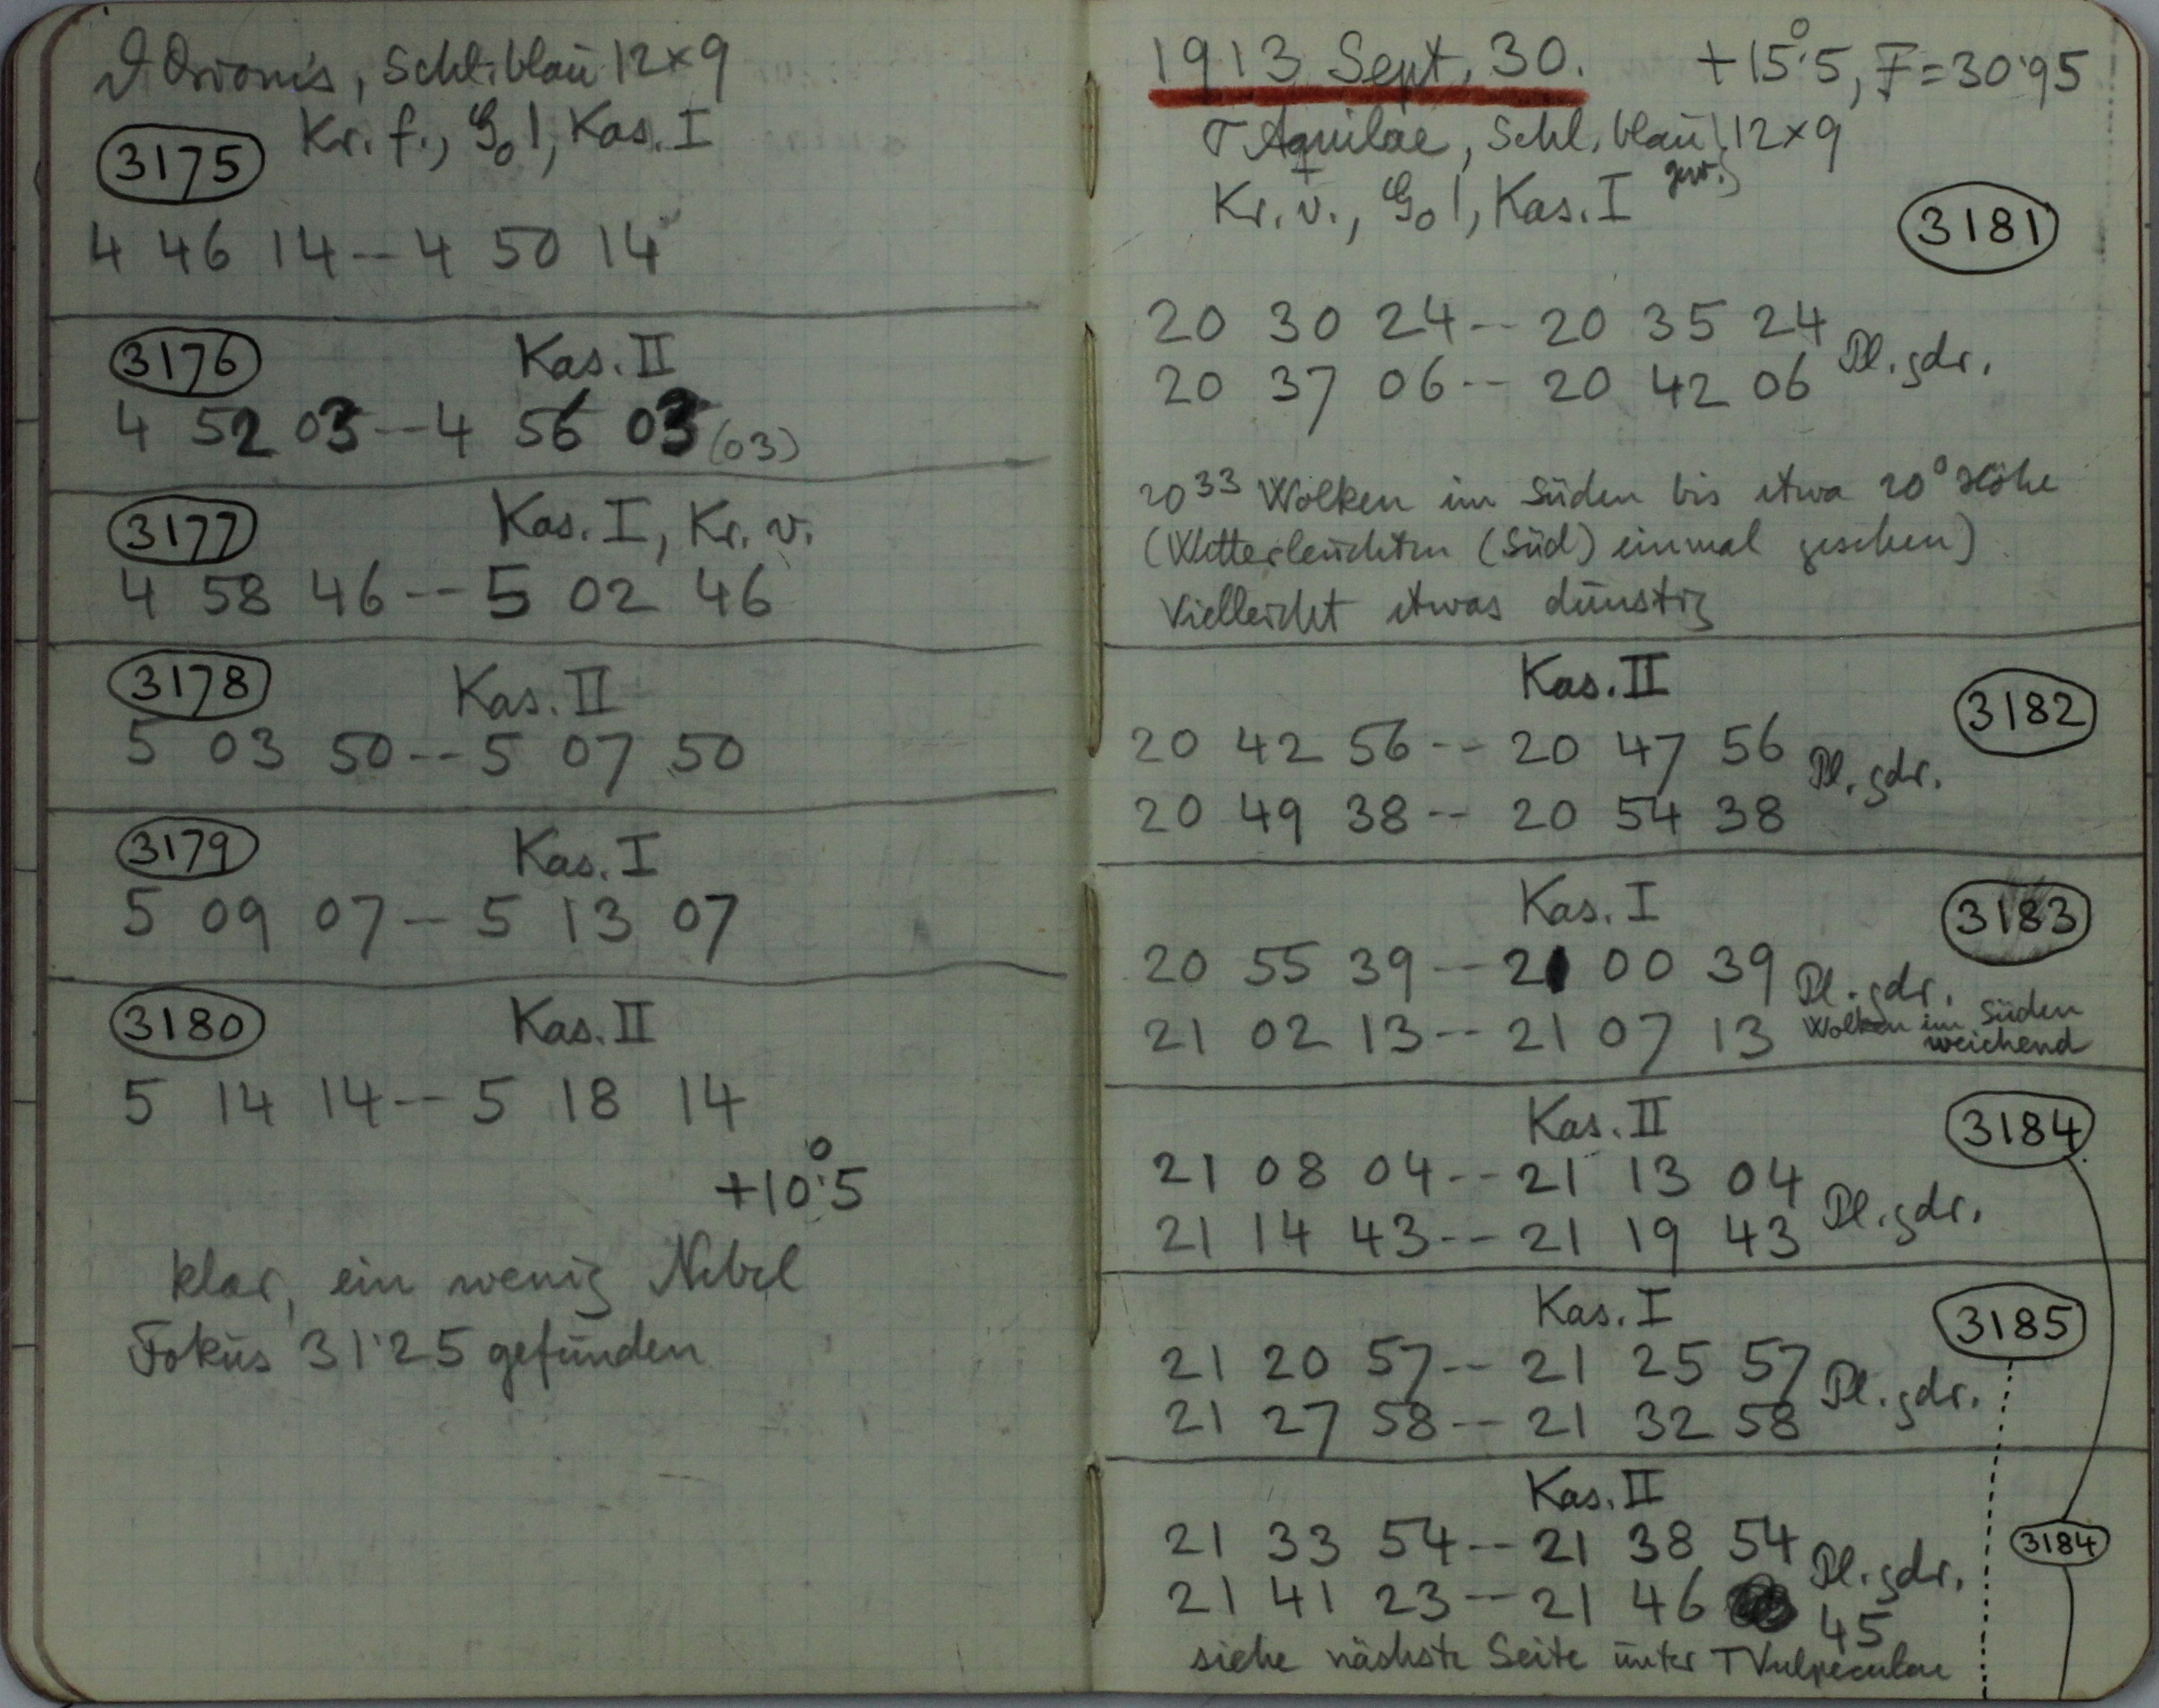 ϑ Orionis, Schl. blau 12×9
Kr. f., G₀ 1, Kas. I
3175
4 46 14 -- 4 50 14
3176 Kas. II
4 52 03 -- 4 56 03 (03)
3177 Kas. I, Kr. v.
4 58 46 -- 5 02 46
3178 Kas. II
5 03 50 -- 5 07 50
3179 Kas. I
5 09 07 -- 5 13 07
3180 Kas. II
5 14 14 -- 5 18 14
+10°.5
klar, ein wenig Nebel
Fokus 31.25 gefunden
1913 Sept. 30. +15°.5, F=30.95
Aquilae, Schl. blau 12×9
Kr. v., G₀ 1, Kas. I gew.
3181
20 30 24 -- 20 35 24
Pl. gdr.
20 37 06 -- 20 42 06
20³³ Wolken im Süden bis etwa 20° Höhe
(Wetterleuchten (Süd) einmal gesehen)
Vielleicht etwas dunstig
Kas. II 3182
20 42 56 -- 20 47 56
Pl. gdr.
20 49 38 -- 20 54 38
Kas. I 3183
20 55 39 -- 21 00 39
Pl. gdr.
21 02 13 -- 21 07 13
Wolken im Süden
weichend
Kas. II 3184
21 08 04 -- 21 13 04
Pl. gdr.
21 14 43 -- 21 19 43
Kas. I 3185
21 20 57 -- 21 25 57
Pl. gdr.
21 27 58 -- 21 32 58
Kas. II
21 33 54 -- 21 38 54 3184
Pl. gdr.
21 41 23 -- 21 46 45
siehe nächste Seite unter T Vulpeculae